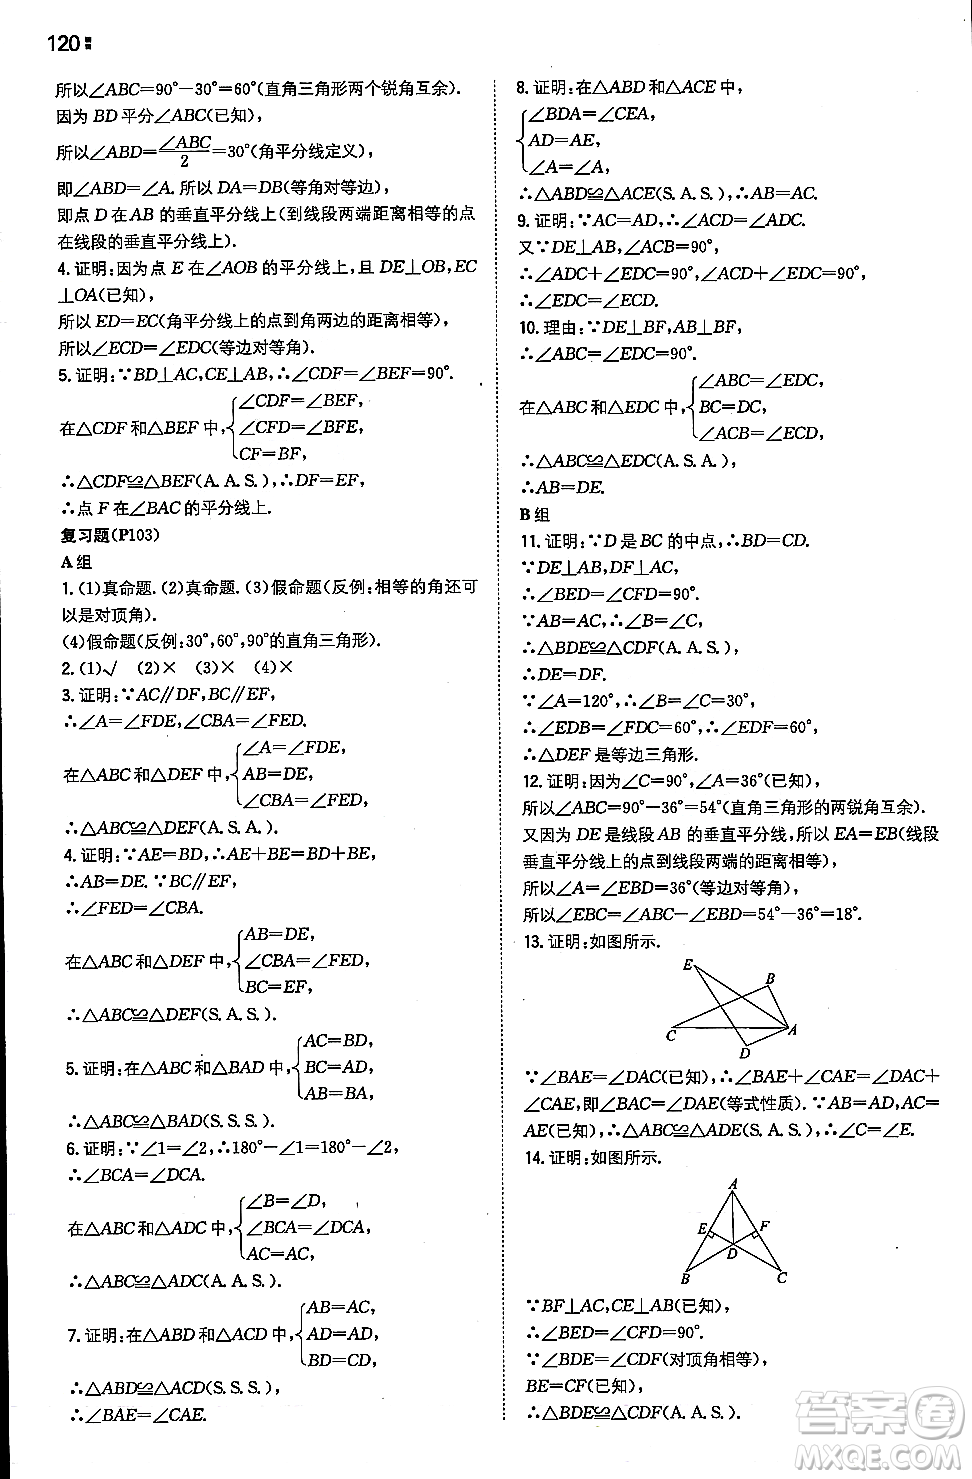 120
所以∠ABC=90°-30°=60°(直角三角形两个锐角互余).
因为 BD 平分∠ABC(已知),
所以∠ABD=∠ABC/2=30°(角平分线定义),
即∠ABD=∠A.所以 DA=DB(等角对等边),
即点 D 在 AB 的垂直平分线上(到线段两端距离相等的点
在线段的垂直平分线上).
4.证明:因为点 E 在∠AOB 的平分线上,且 DE⊥OB,EC
⊥OA(已知),
所以 ED=EC(角平分线上的点到角两边的距离相等),
所以∠ECD=∠EDC(等边对等角).
5.证明:∵BD⊥AC,CE⊥AB,∴∠CDF=∠BEF=90°.
在△CDF 和△BEF 中,
∠CDF=∠BEF,
∠CFD=∠BFE,
CF=BF,
∴△CDF≌△BEF(A.A.S.),∴DF=EF,
∴点 F 在∠BAC 的平分线上.
复习题(P103)
A 组
1.(1)真命题.(2)真命题.(3)假命题(反例:相等的角还可
以是对顶角).
(4)假命题(反例:30°,60°,90°的直角三角形).
2.(1)√ (2)× (3)× (4)×
3.证明:∵AC∥DF,BC∥EF,
∴∠A=∠FDE,∠CBA=∠FED.
在△ABC 和△DEF 中,
∠A=∠FDE,
AB=DE,
∠CBA=∠FED,
∴△ABC≌△DEF(A.S.A.).
4.证明:∵AE=BD,∴AE+BE=BD+BE,
∴AB=DE.∵BC∥EF,
∴∠FED=∠CBA.
在△ABC 和△DEF 中,
AB=DE,
∠CBA=∠FED,
BC=EF,
∴△ABC≌△DEF(S.A.S.).
5.证明:在△ABC 和△BAD 中,
AC=BD,
BC=AD,
AB=BA,
∴△ABC≌△BAD(S.S.S.).
6.证明:∵∠1=∠2,∴180°-∠1=180°-∠2,
∴∠BCA=∠DCA.
在△ABC 和△ADC 中,
∠B=∠D,
∠BCA=∠DCA,
AC=AC,
∴△ABC≌△ADC(A.A.S.).
7.证明:在△ABD 和△ACD 中,
AB=AC,
AD=AD,
BD=CD,
∴△ABD≌△ACD(S.S.S.),
∴∠BAE=∠CAE.
8.证明:在△ABD 和△ACE 中,
∠BDA=∠CEA,
AD=AE,
∠A=∠A,
∴△ABD≌△ACE(S.A.S.),∴AB=AC.
9.证明:∵AC=AD,∴∠ACD=∠ADC.
又∵DE⊥AB,∠ACB=90°,
∴∠ADC+∠EDC=90°,∠ACD+∠DCE=90°,
∴∠EDC=∠ECD.
10.理由:∵DE⊥BF,AB⊥BF,
∴∠ABC=∠EDC=90°.
在△ABC 和△EDC 中,
∠ABC=∠EDC,
BC=DC,
∠ACB=∠ECD,
∴△ABC≌△EDC(A.S.A.),
∴AB=DE.
B 组
11.证明:∵D 是 BC 的中点,∴BD=CD.
∵DE⊥AB,DF⊥AC,
∴∠BED=∠CFD=90°.
∵AB=AC,∴∠B=∠C,
∴△BDE≌△CDF(A.A.S.),
∴DE=DF.
∵∠A=120°,∴∠B=∠C=30°,
∴∠EDB=∠FDC=60°,∴∠EDF=60°,
∴△DEF 是等边三角形.
12.证明:因为∠C=90°,∠A=36°(已知),
所以∠ABC=90°-36°=54°(直角三角形的两锐角互余).
又因为 DE 是线段 AB 的垂直平分线,所以 EA=EB(线段
垂直平分线上的点到线段两端的距离相等),
所以∠A=∠EBD=36°(等边对等角),
所以∠EBC=∠ABC-∠EBD=54°-36°=18°.
13.证明:如图所示.
E
B
C
A
D
∵∠BAE=∠DAC(已知),∴∠BAE+∠CAE=∠DAC+
∠CAE,即∠BAC=∠DAE(等式性质).∵AB=AD,AC=
AE(已知),∴△ABC≌△ADE(S.A.S.),∴∠C=∠E.
14.证明:如图所示.
A
E F
D
B C
∵BF⊥AC,CE⊥AB(已知),
∴∠BED=∠CFD=90°.
∵∠BDE=∠CDF(对顶角相等),
BE=CF(已知),
∴△BDE≌△CDF(A.A.S.),
答案圈
MXQE.COM